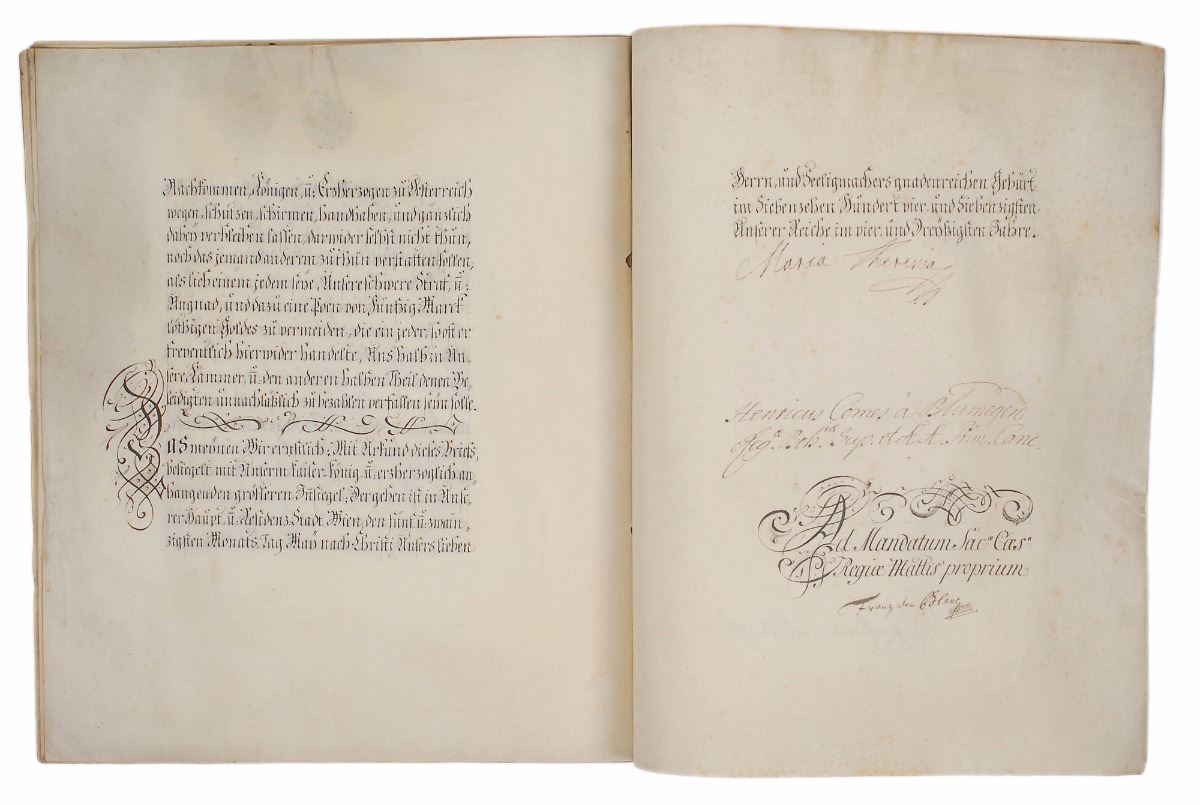 Nachkommen, Königen, ů: Erzherzogen zu Österreich
wegen, schutzen, schirmen, handhaben, und gänzlich
dabey verbleiben lassen, darwider selbst nicht thun,
noch das jemand anderem zu thun verstatten sollen,
als lieb einem jedem seye, Unsere schwere Straf, ů:
Ungnad, und dazu eine Poen von Funfzig Marck
löthigen Goldes zu vermeiden, die ein jeder, so oft er
freventlich hierwider handelte, Uns halb in Un-
sere Kammer, ů: den anderen halben Theil denen Be-
leidigten unnachläßlich zu bezahlen verfallen seÿn solle.
Das meÿnen Wir ernstlich; Mit Urkund dieses Briefs,
besiegelt mit Unserm kaiser-könig ů: erzherzoglich an-
hangenden grösseren Innsiegel; Der geben ist in Unse-
rer Haupt, ů: Residenz Stadt Wien, den fünf ů: zwain-
zigsten Monats, Tag Maÿ nach Christi Unsers lieben
Herrn, und Seeligmachers gnadenreichen Gebürt
im Siebenzehen Hundert vier und Siebenzigsten
Unserer Reiche im vier und Dreÿßigsten Jahre.
Maria Theresia
Henricus Comes à Blümegen
Regæ Bohæ Sup. et A. A. Prim. Canc.
Ad Mandatum Sacæ Cæsæ
Regiæ Mattis proprium
Franz von Blanc